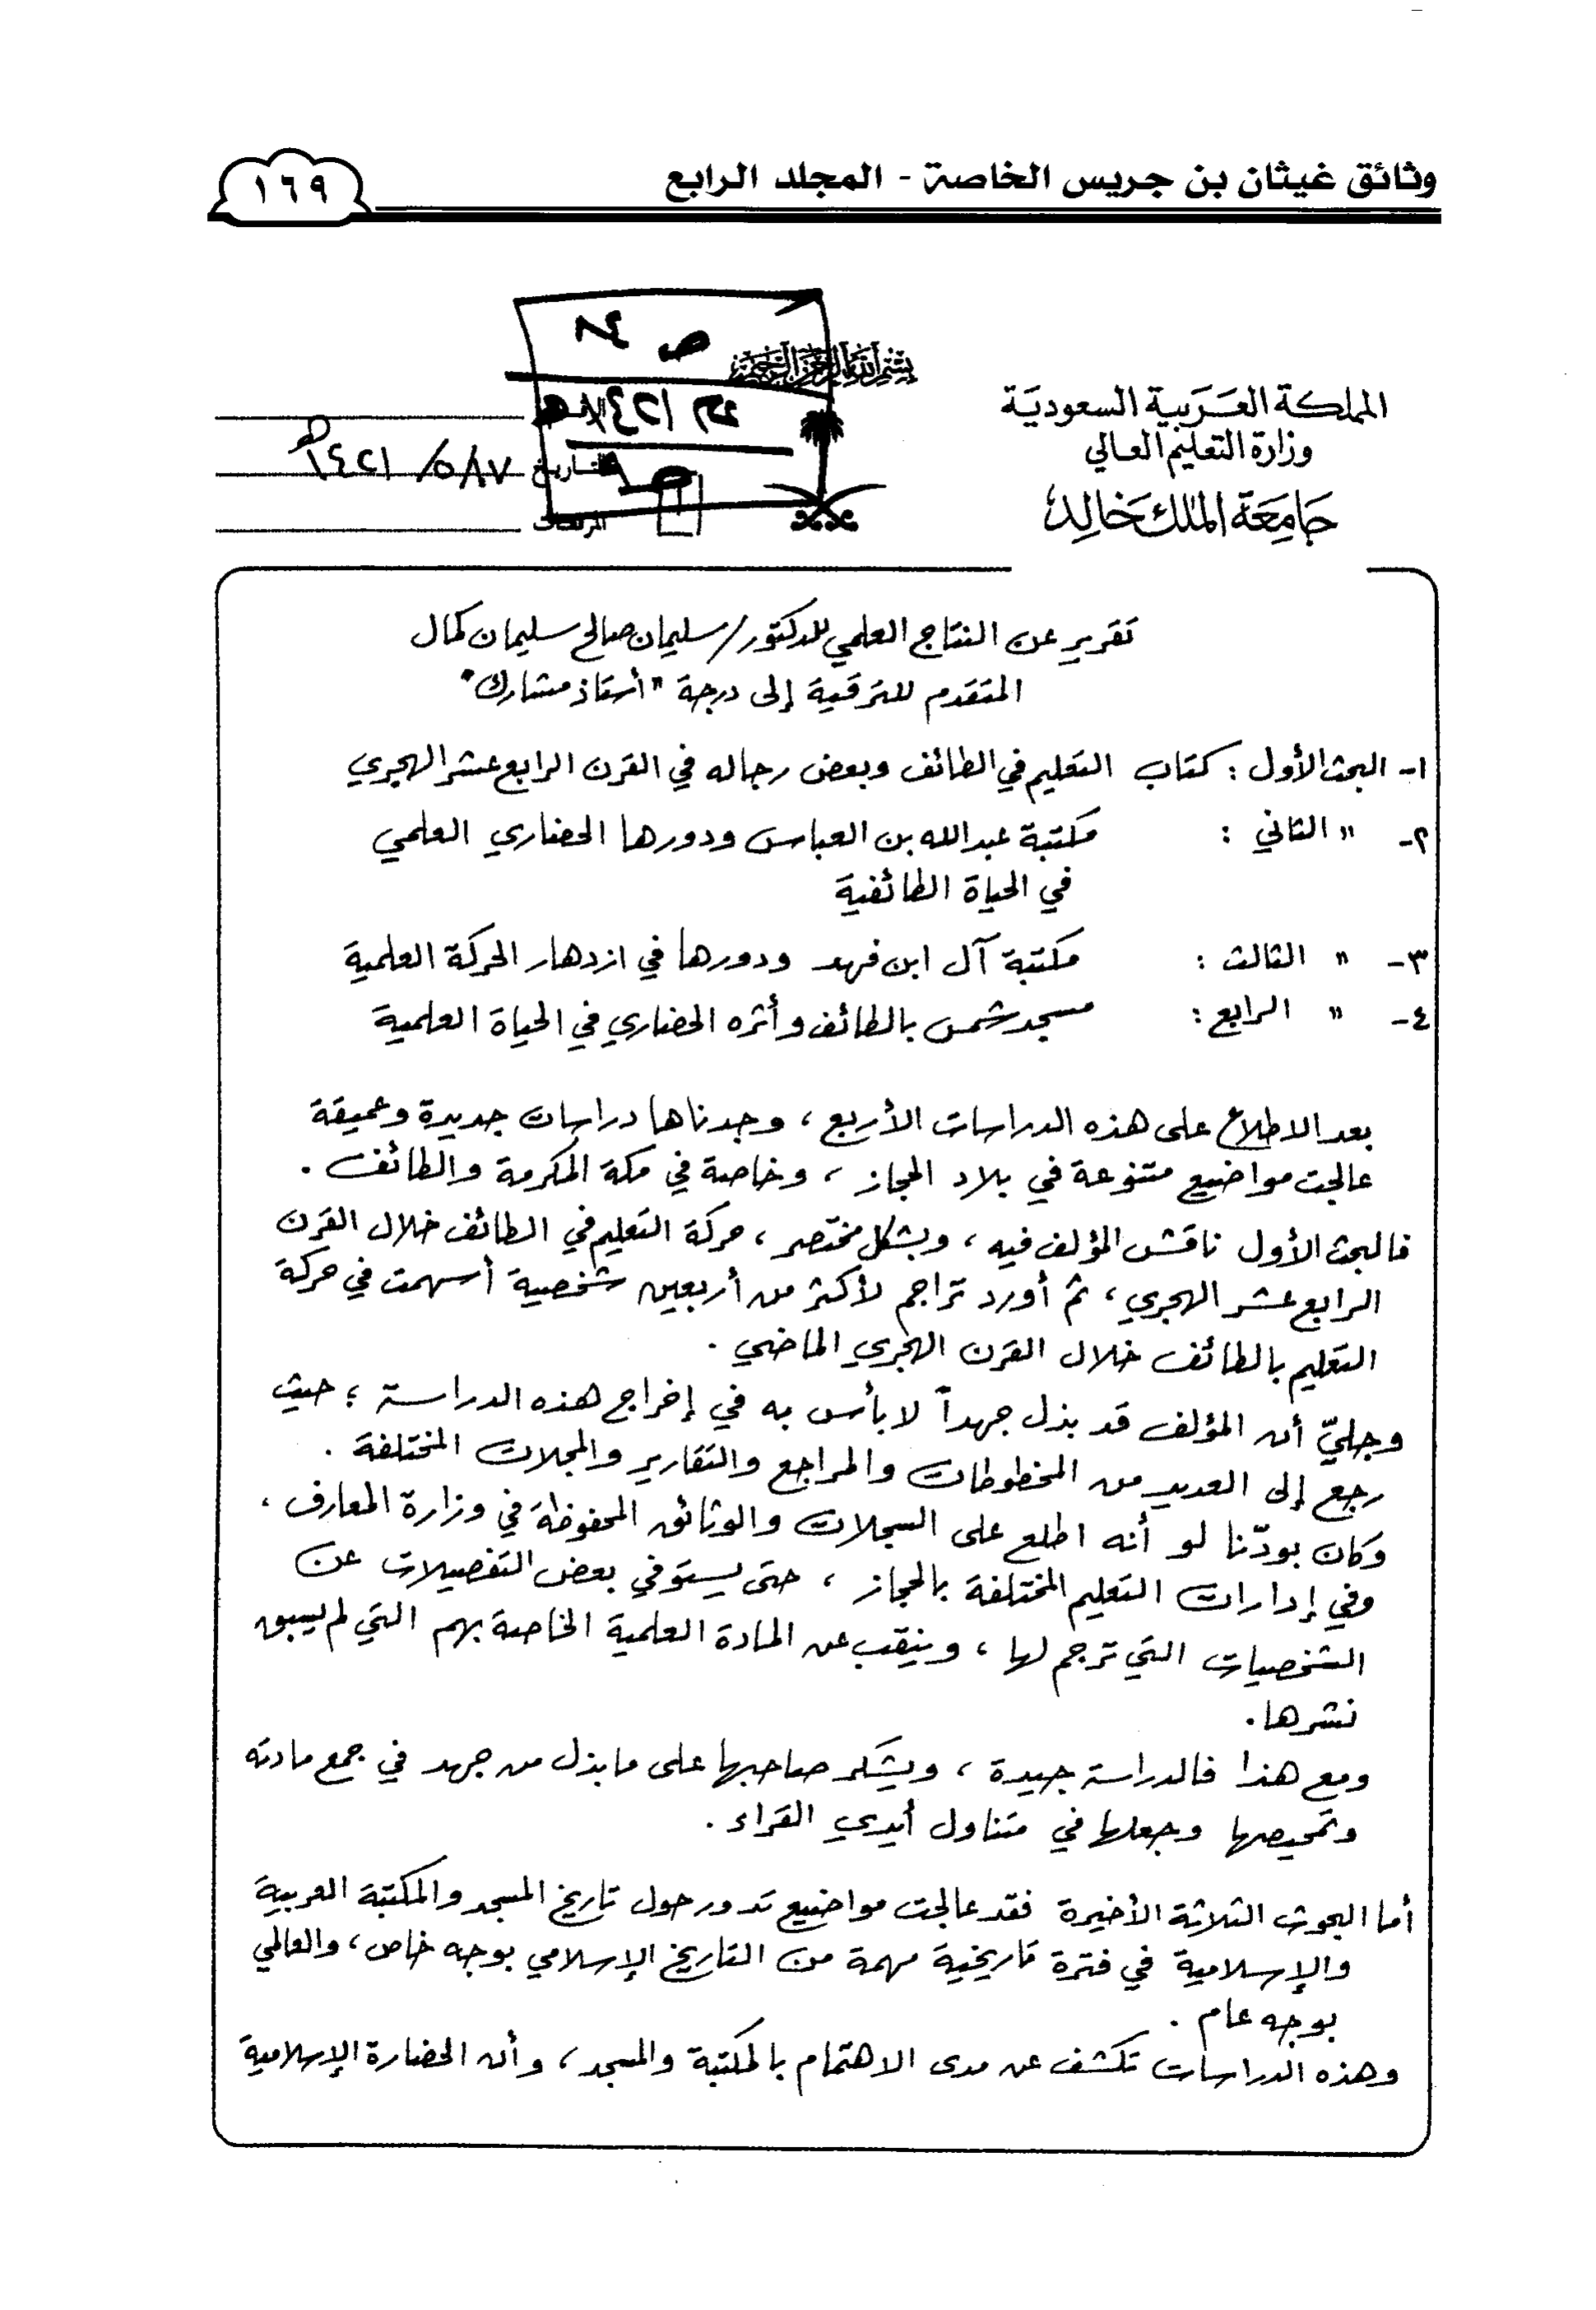 وثائق غيثان بن جريس الخاصة - المجلد الرابع
١٦٩
بسم الله الرحمن الرحيم
المملكة العربية السعودية
وزارة التعليم العالي
جامعة الملك خالد
التاريخ ١٧/ ٥/ ١٤٢١هـ
المرفقات
تقرير عن النتاج العلمي للدكتور/ سليمان صالح سليمان كمال
المتقدم للترقية إلى درجة "أستاذ مشارك"
١- البحث الأول : كتاب التعليم في الطائف وبعض رجاله في القرن الرابع عشر الهجري
٢- " الثاني : مكتبة عبدالله بن العباس ودورها الحضاري العلمي
في الحياة الطائفية
٣- " الثالث : مكتبة آل ابن فهد ودورها في ازدهار الحركة العلمية
٤- " الرابع : مسجد شمس بالطائف وأثره الحضاري في الحياة العلمية
بعد الاطلاع على هذه الدراسات الأربع ، وجدناها دراسات جديدة وعميقة
عالجت مواضيع متنوعة في بلاد الحجاز ، وخاصة في مكة المكرمة والطائف .
فالبحث الأول ناقش المؤلف فيه ، وبشكل مختصر ، حركة التعليم في الطائف خلال القرن
الرابع عشر الهجري ، ثم أورد تراجم لأكثر من أربعين شخصية أسهمت في حركة
التعليم بالطائف خلال القرن الهجري الماضي .
وجليّ أن المؤلف قد بذل جهداً لا بأس به في إخراج هذه الدراسة ؛ حيث
رجع إلى العديد من المخطوطات والمراجع والتقارير والمجلات المختلفة .
وكان بودّنا لو أنه اطلع على السجلات والوثائق المحفوظة في وزارة المعارف ،
وفي إدارات التعليم المختلفة بالحجاز ، حتى يستوفي بعض التفصيلات عن
الشخصيات التي ترجم لها ، وينقب عن المادة العلمية الخاصة بهم التي لم يسبق
نشرها .
ومع هذا فالدراسة جيدة ، ويشكر صاحبها على ما بذل من جهد في جمع مادته
وتمحيصها وجعلها في متناول أيدي القراء .
أما البحوث الثلاثة الأخيرة فقد عالجت مواضيع تدور حول تاريخ المسجد والمكتبة العربية
والإسلامية في فترة تاريخية مهمة من التاريخ الإسلامي بوجه خاص ، والعالمي
بوجه عام .
وهذه الدراسات تكشف عن مدى الاهتمام بالمكتبة والمسجد ، وأن الحضارة الإسلامية